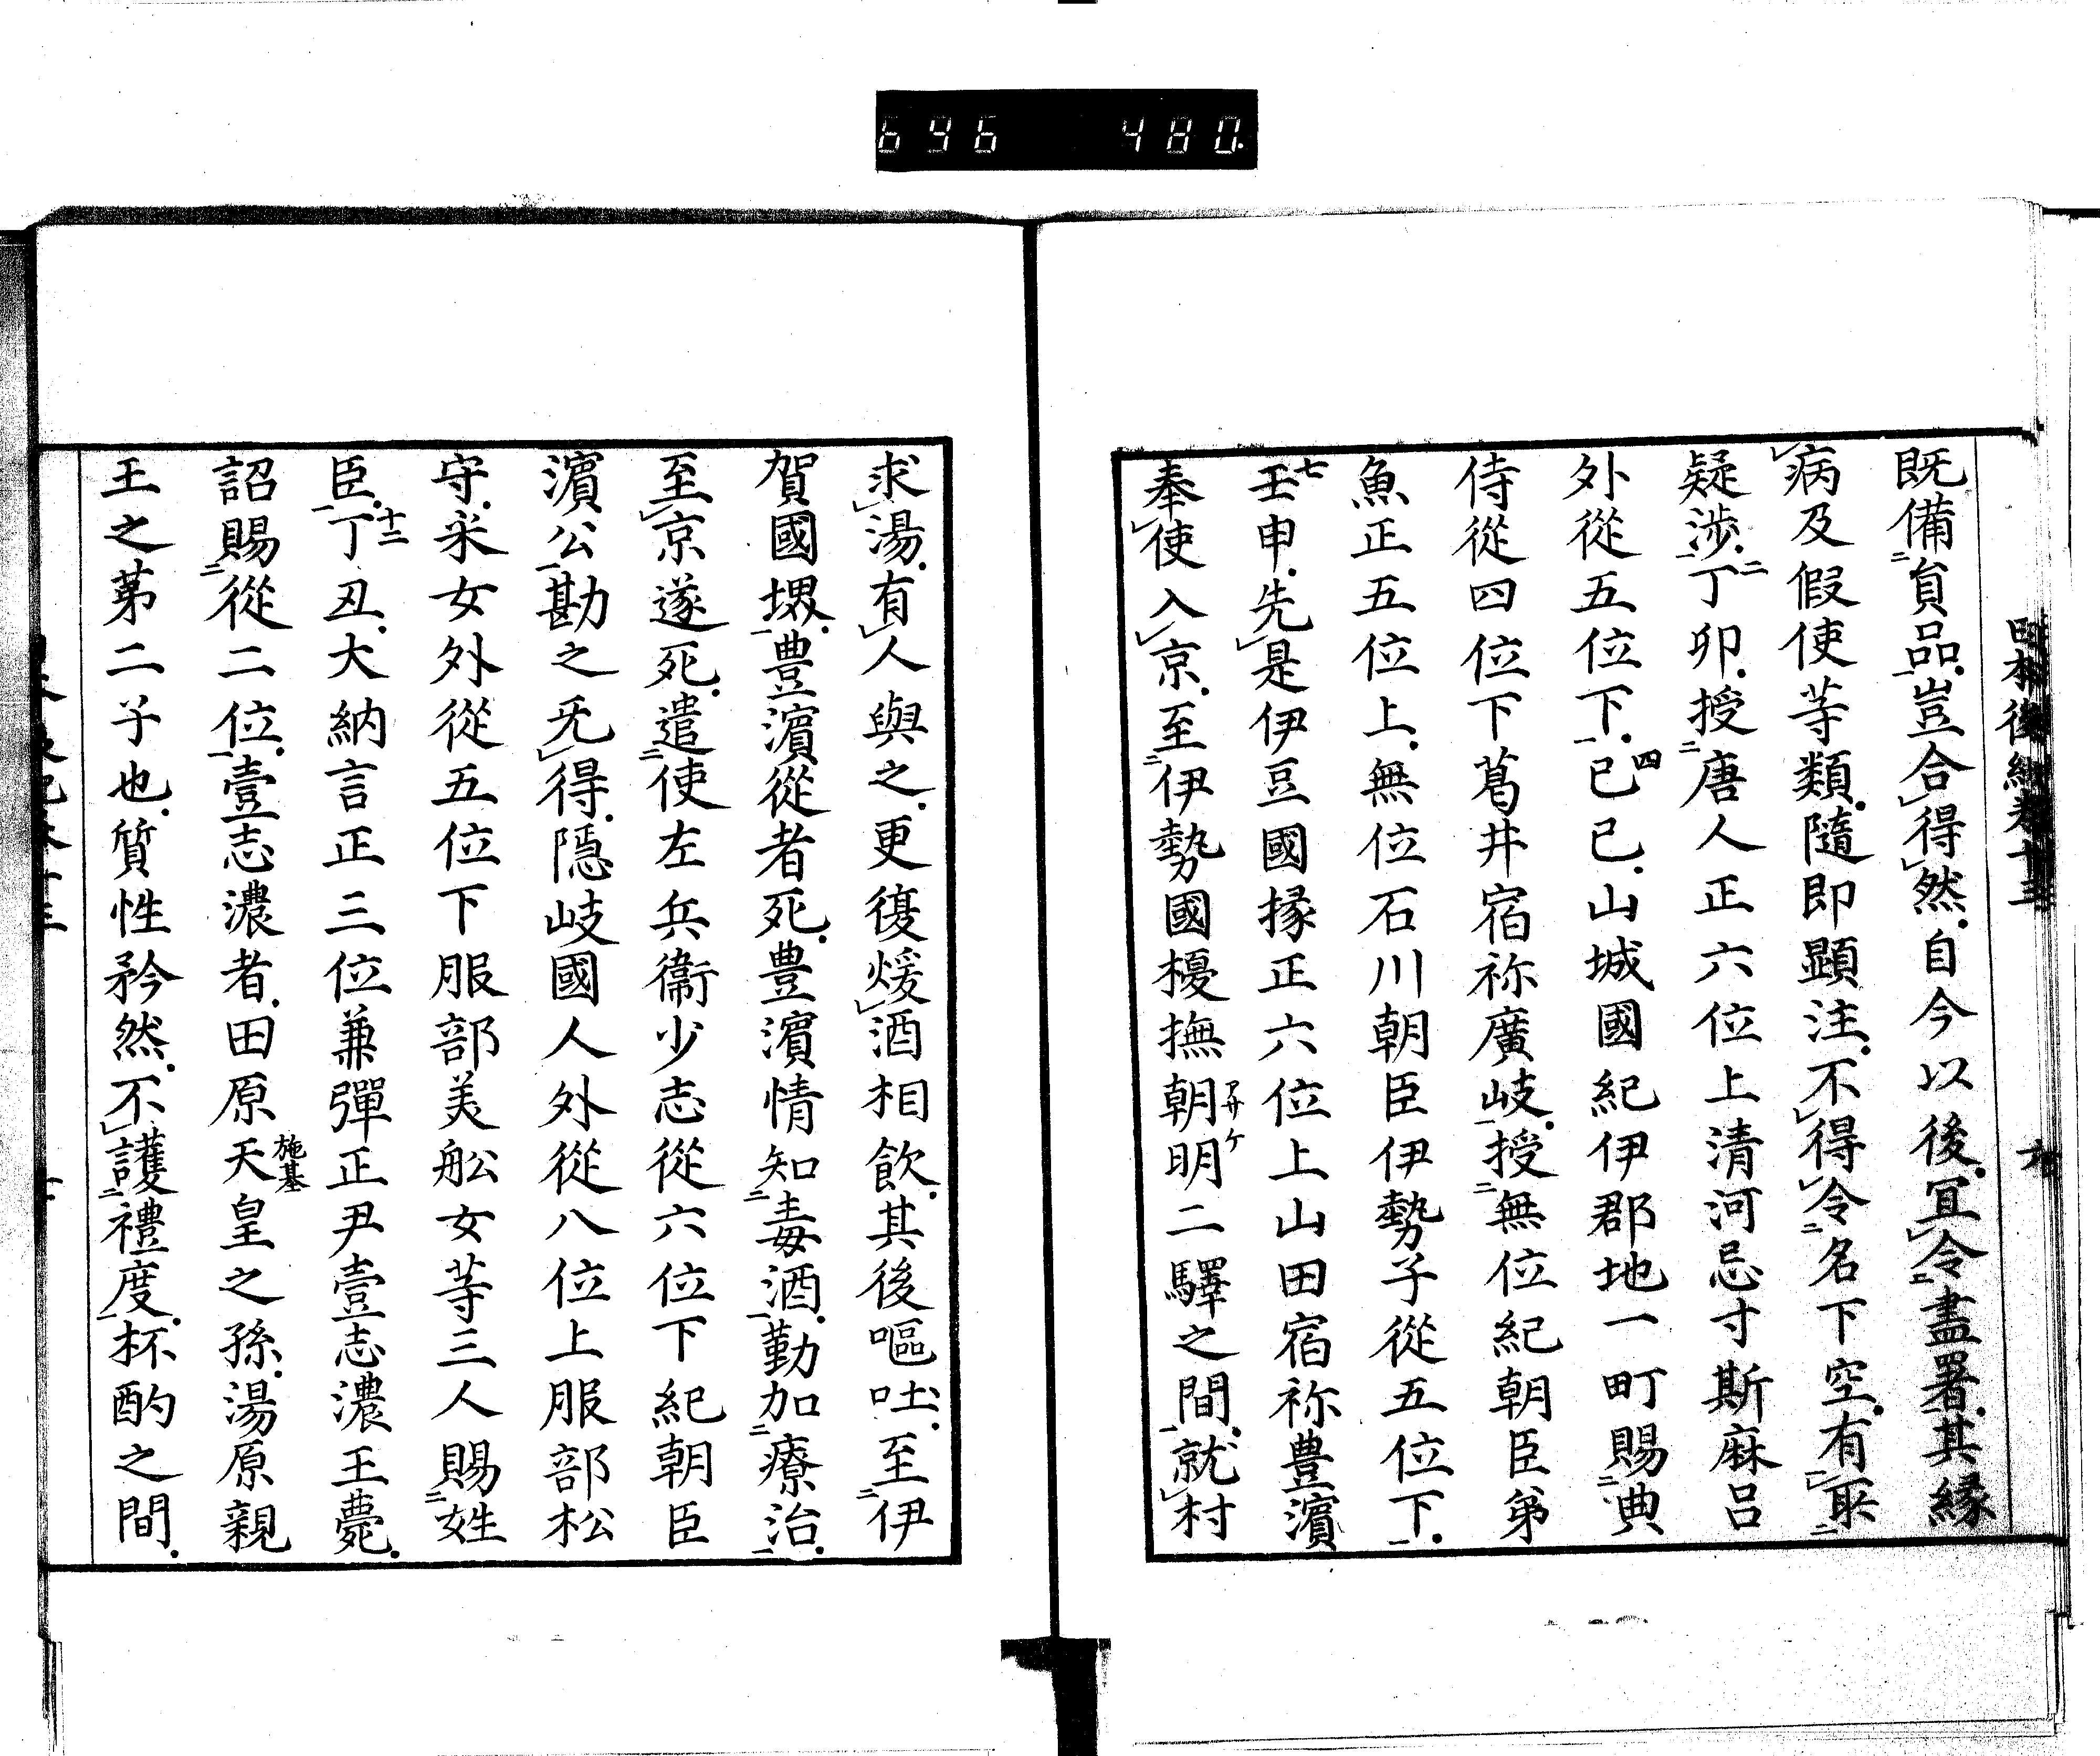 696 480
日本後紀卷十三 六
既備員品豈合得然自今以後冝令盡署其緣
病及假使等類隨即顯注不得令名下空有取
疑渉二丁卯授唐人正六位上清河忌寸斯麻呂
外從五位下四己巳山城國紀伊郡地一町賜典
侍從四位下葛井宿祢廣岐授無位紀朝臣弟
魚正五位上無位石川朝臣伊勢子從五位下
七壬申先是伊豆國掾正六位上山田宿祢豊濱
奉使入京至伊勢國榎撫朝明アサケ二驛之間就村
求湯有人與之更復煖酒相飲其後嘔吐至伊
賀國堺豊濱從者死豊濱情知毒酒勤加療治
至京遂死遣使左兵衞少志從六位下紀朝臣
濱公勘之旡得隱岐國人外從八位上服部松
守采女外從五位下服部美舩女等三人賜姓
臣十二丁丑大納言正三位兼彈正尹壹志濃王薨
詔賜從二位壹志濃者田原天皇施基之孫湯原親
王之苐二子也質性矜然不護禮度杯酌之間